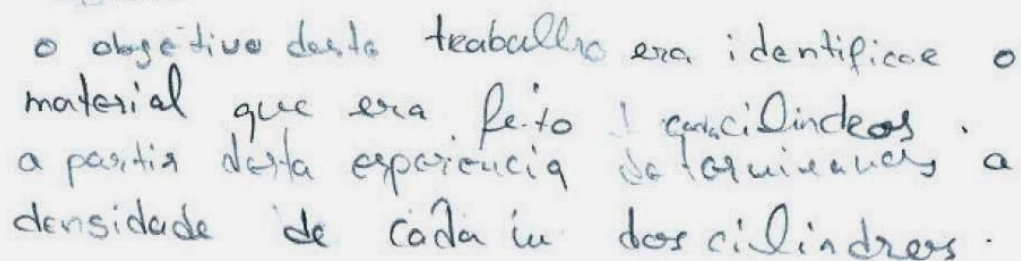 o objetivo deste trabalho era identificar o
material que era feito cada cilindros.
a partir desta esperiencia determinamos a
densidade de cada um dos cilindros.